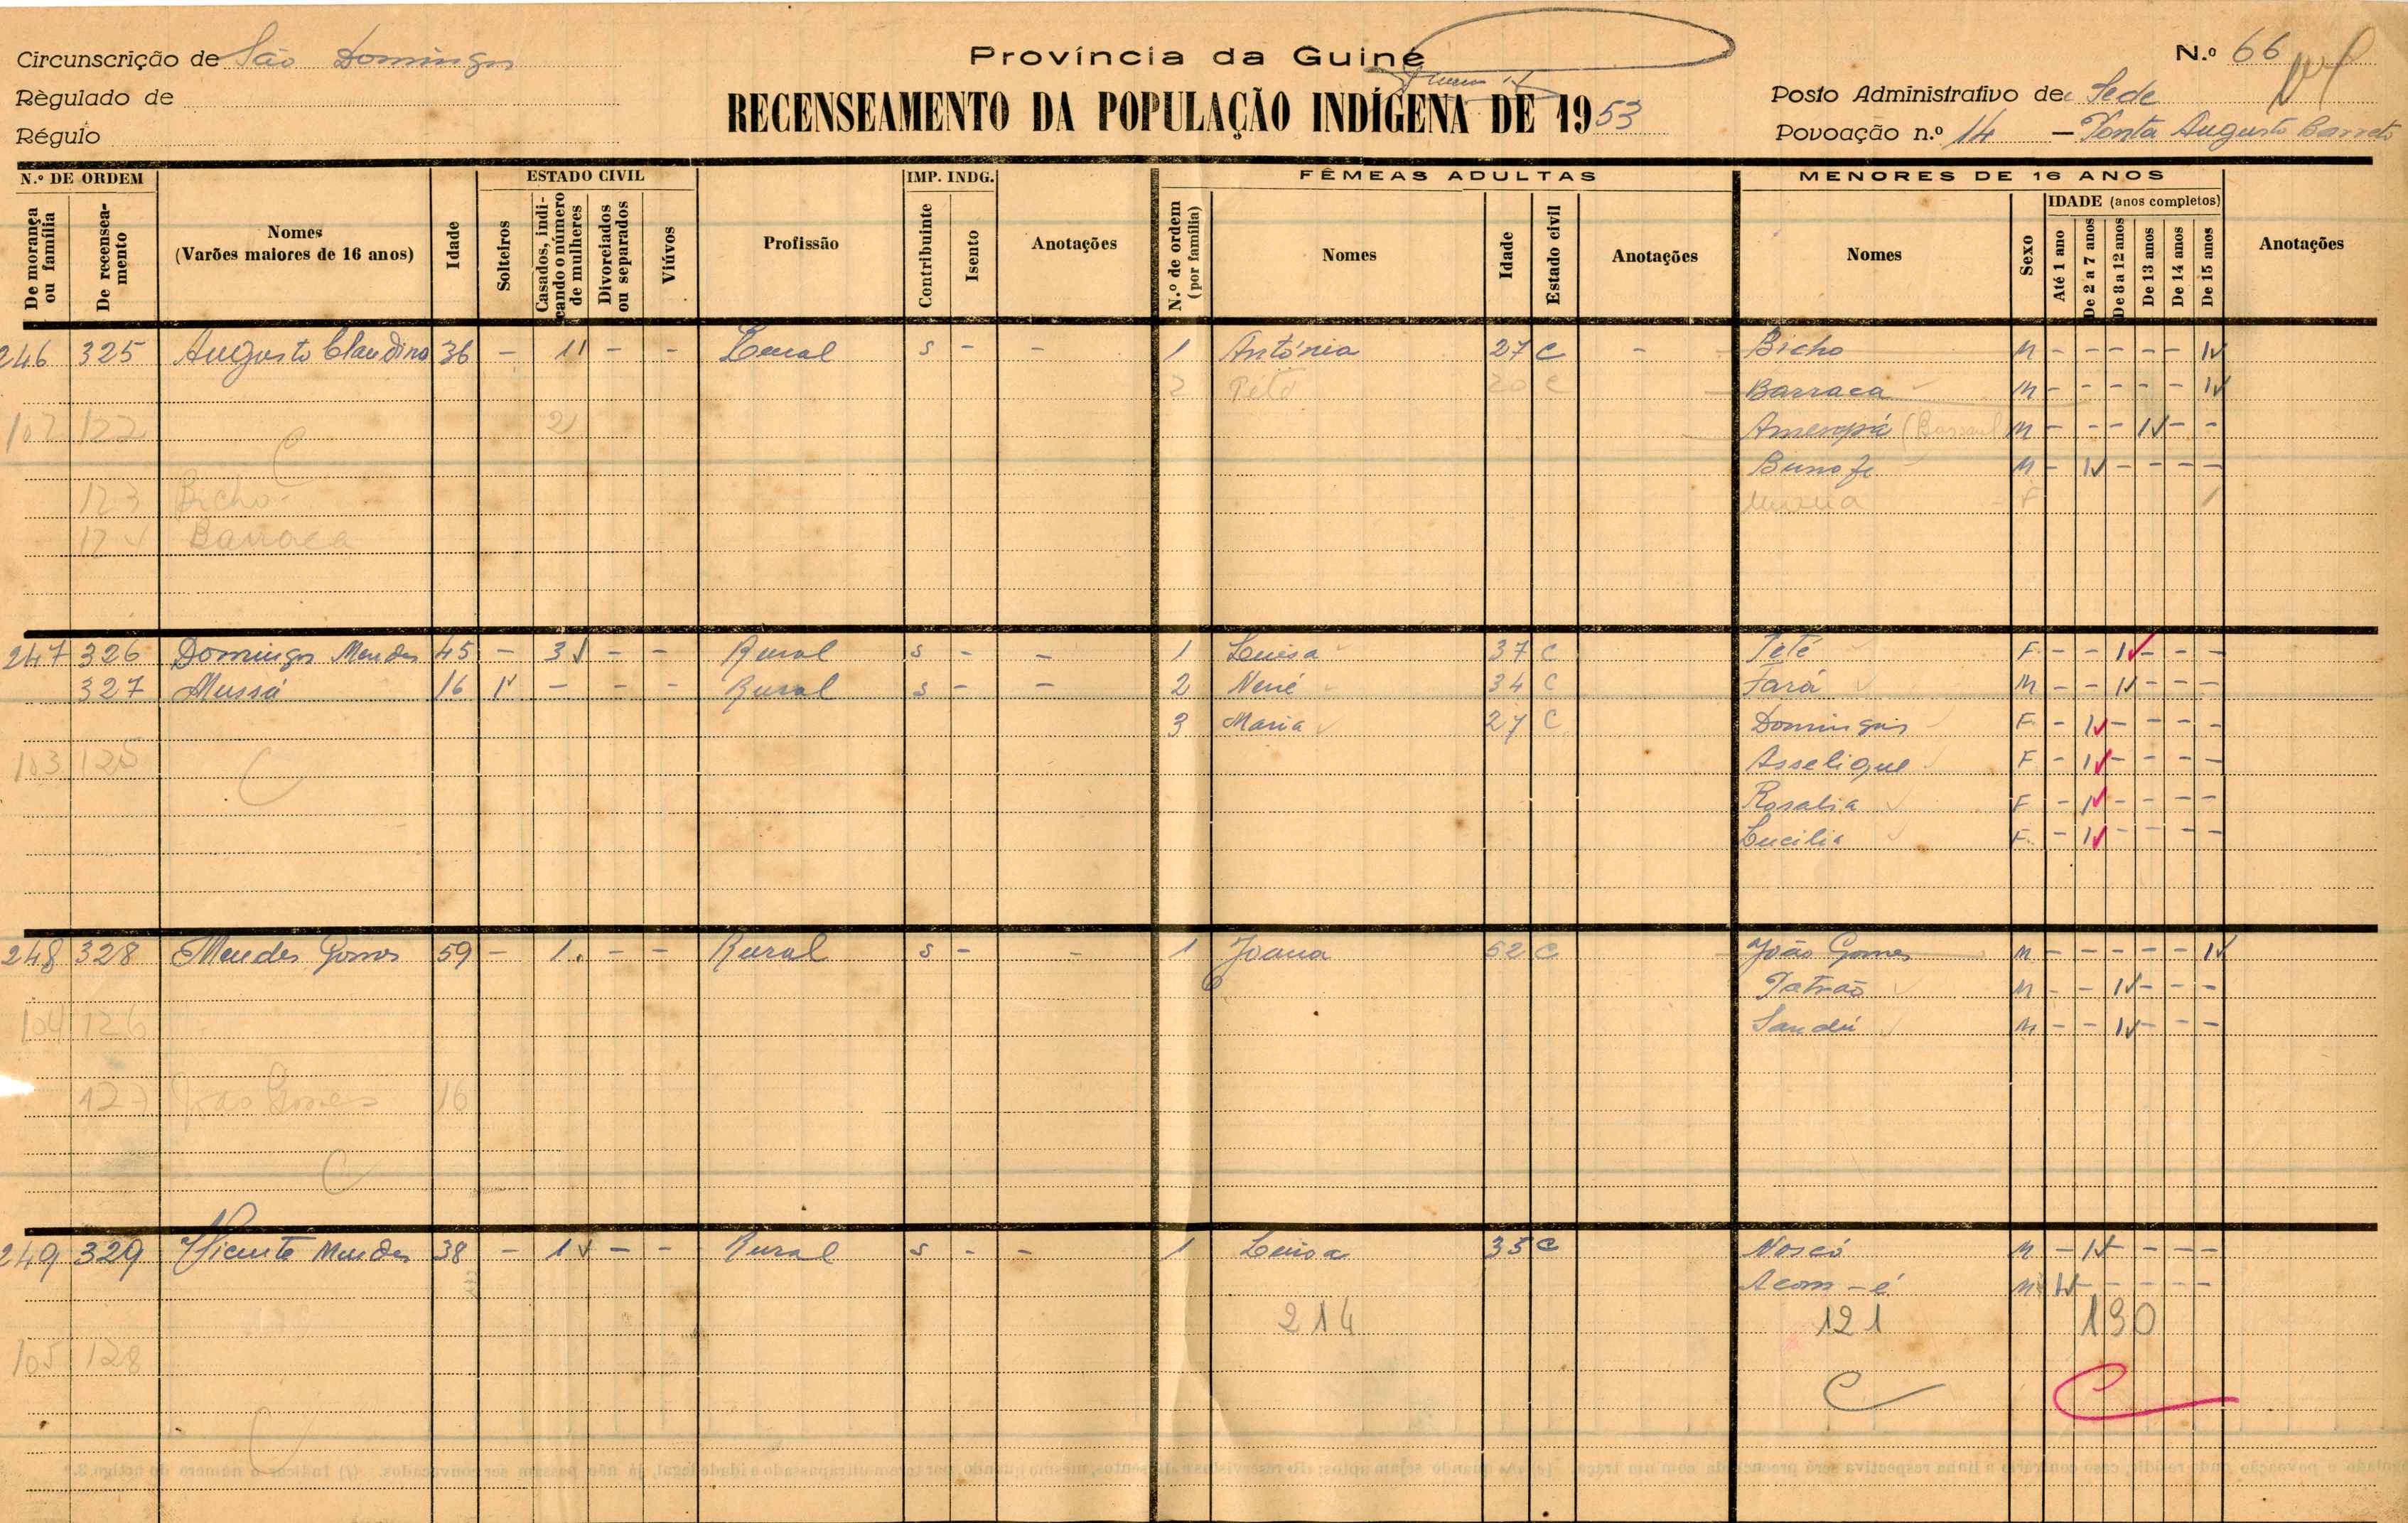 Circunscrição de São Domingos
Província da Guiné
N.º 66
Règulado de
Posto Administrativo de Sede
RECENSEAMENTO DA POPULAÇÃO INDÍGENA DE 1953
Régulo
Povoação n.º 14 — Ponta Augusto Barreto
N.º DE ORDEM
De morança ou família
De recenseamento
Nomes
(Varões maiores de 16 anos)
Idade
ESTADO CIVIL
Solteiros
Casados, indicando o número de mulheres
Divorciados ou separados
Viúvos
Profissão
IMP. INDG.
Contribuinte
Isento
Anotações
FÊMEAS ADULTAS
N.º de ordem (por família)
Nomes
Idade
Estado civil
Anotações
MENORES DE 16 ANOS
Nomes
Sexo
IDADE (anos completos)
Até 1 ano
De 2 a 7 anos
De 8 a 12 anos
De 13 anos
De 14 anos
De 15 anos
Anotações
246 325 Augusto Claudino 36 - 1 - - Rural s - - 1 Antónia 27 C - Bicho M - - - - - 1
2 Peto 20 C Barraca M - - - - - 1
102 122 2 M - - - 1 - -
M - 1 - - - -
123 Bicho F 1
124 Barraca
247 326 Domingos Mendes 45 - 3 - - Rural s - - 1 Luisa 37 C Teté F - - 1 - - -
327 Mussá 16 1 - - - Rural s - - 2 Nené 34 C Fará M - - 1 - - -
3 Maria 27 C Domingas F - 1 - - - -
103 125 Asselique F - 1 - - - -
Rosalia F - 1 - - - -
Lucilia F - 1 - - - -
248 328 Mendes Gomes 59 - 1 - - Rural s - - 1 Joana 52 C João Gomes M - - - - - 1
Patrão M - - 1 - - -
104 126 Sandú M - - 1 - - -
127 João Gomes 16
249 329 Vicente Mendes 38 - 1 - - Rural s - - 1 Luisa 35 C Noscó M - 1 - - - -
Acom-é M 1 - - - - -
214 121 130
105 128